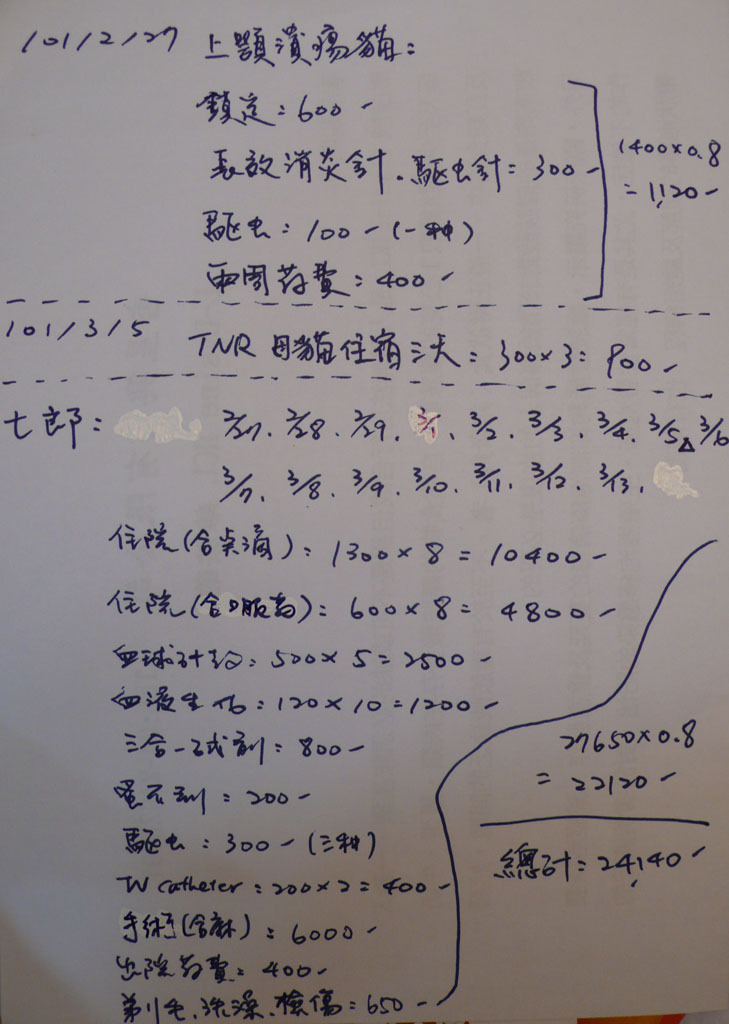 101/2/27 上顎潰瘍貓：
鎮定：600-
長效消炎針、驅虫針=300-
驅虫：100-(一种)
兩周葯費：400-
1400×0.8
=1,120-
101/3/5 TNR 母貓住宿三天：300×3=900-
七郎：2/27、2/28、2/29、3/1、3/2、3/3、3/4、3/5、3/6
3/7、3/8、3/9、3/10、3/11、3/12、3/13、
住院(含点滴)：1300×8=10400-
住院(含口服葯)：600×8=4800-
血球計数：500×5=2500-
血液生化：120×10=1200-
三合一試劑：800-
蚤不到：200-
驅虫：300-(三种)
IV catheter：200×2=400-
手術(含麻)：6000-
出院葯費：400-
剃毛、洗澡、檢傷：650-
27650×0.8
=22120-
總計=24,140-